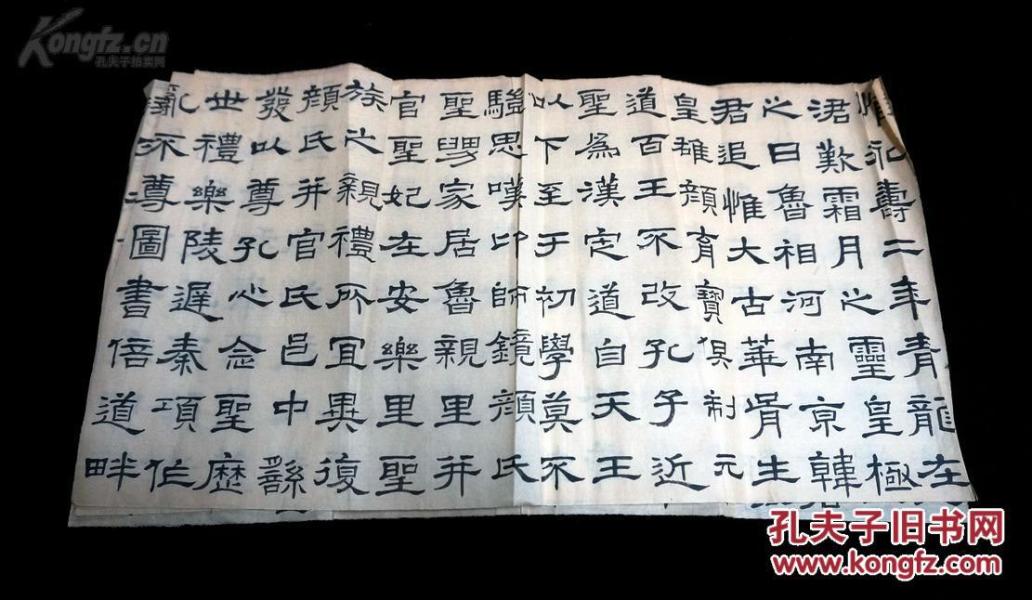 惟永壽二年青龍在
涒歎霜月之靈皇極
之日魯相河南京韓
君追惟大古華胥生
皇雄顏育寶俱制元
道百王不改孔子近
聖為漢定道自天王
以下至于初學莫不
驗思嘆卬師鏡顏氏
聖舅家居魯親里并
官聖妃在安樂里聖
族之親禮所宜異復
顏氏并官氏邑中繇
發以尊孔心念聖歷
世禮樂陵遲秦項作
亂不尊圖書倍道畔
Kongfz.cn
孔夫子拍卖网
孔夫子旧书网
www.kongfz.com